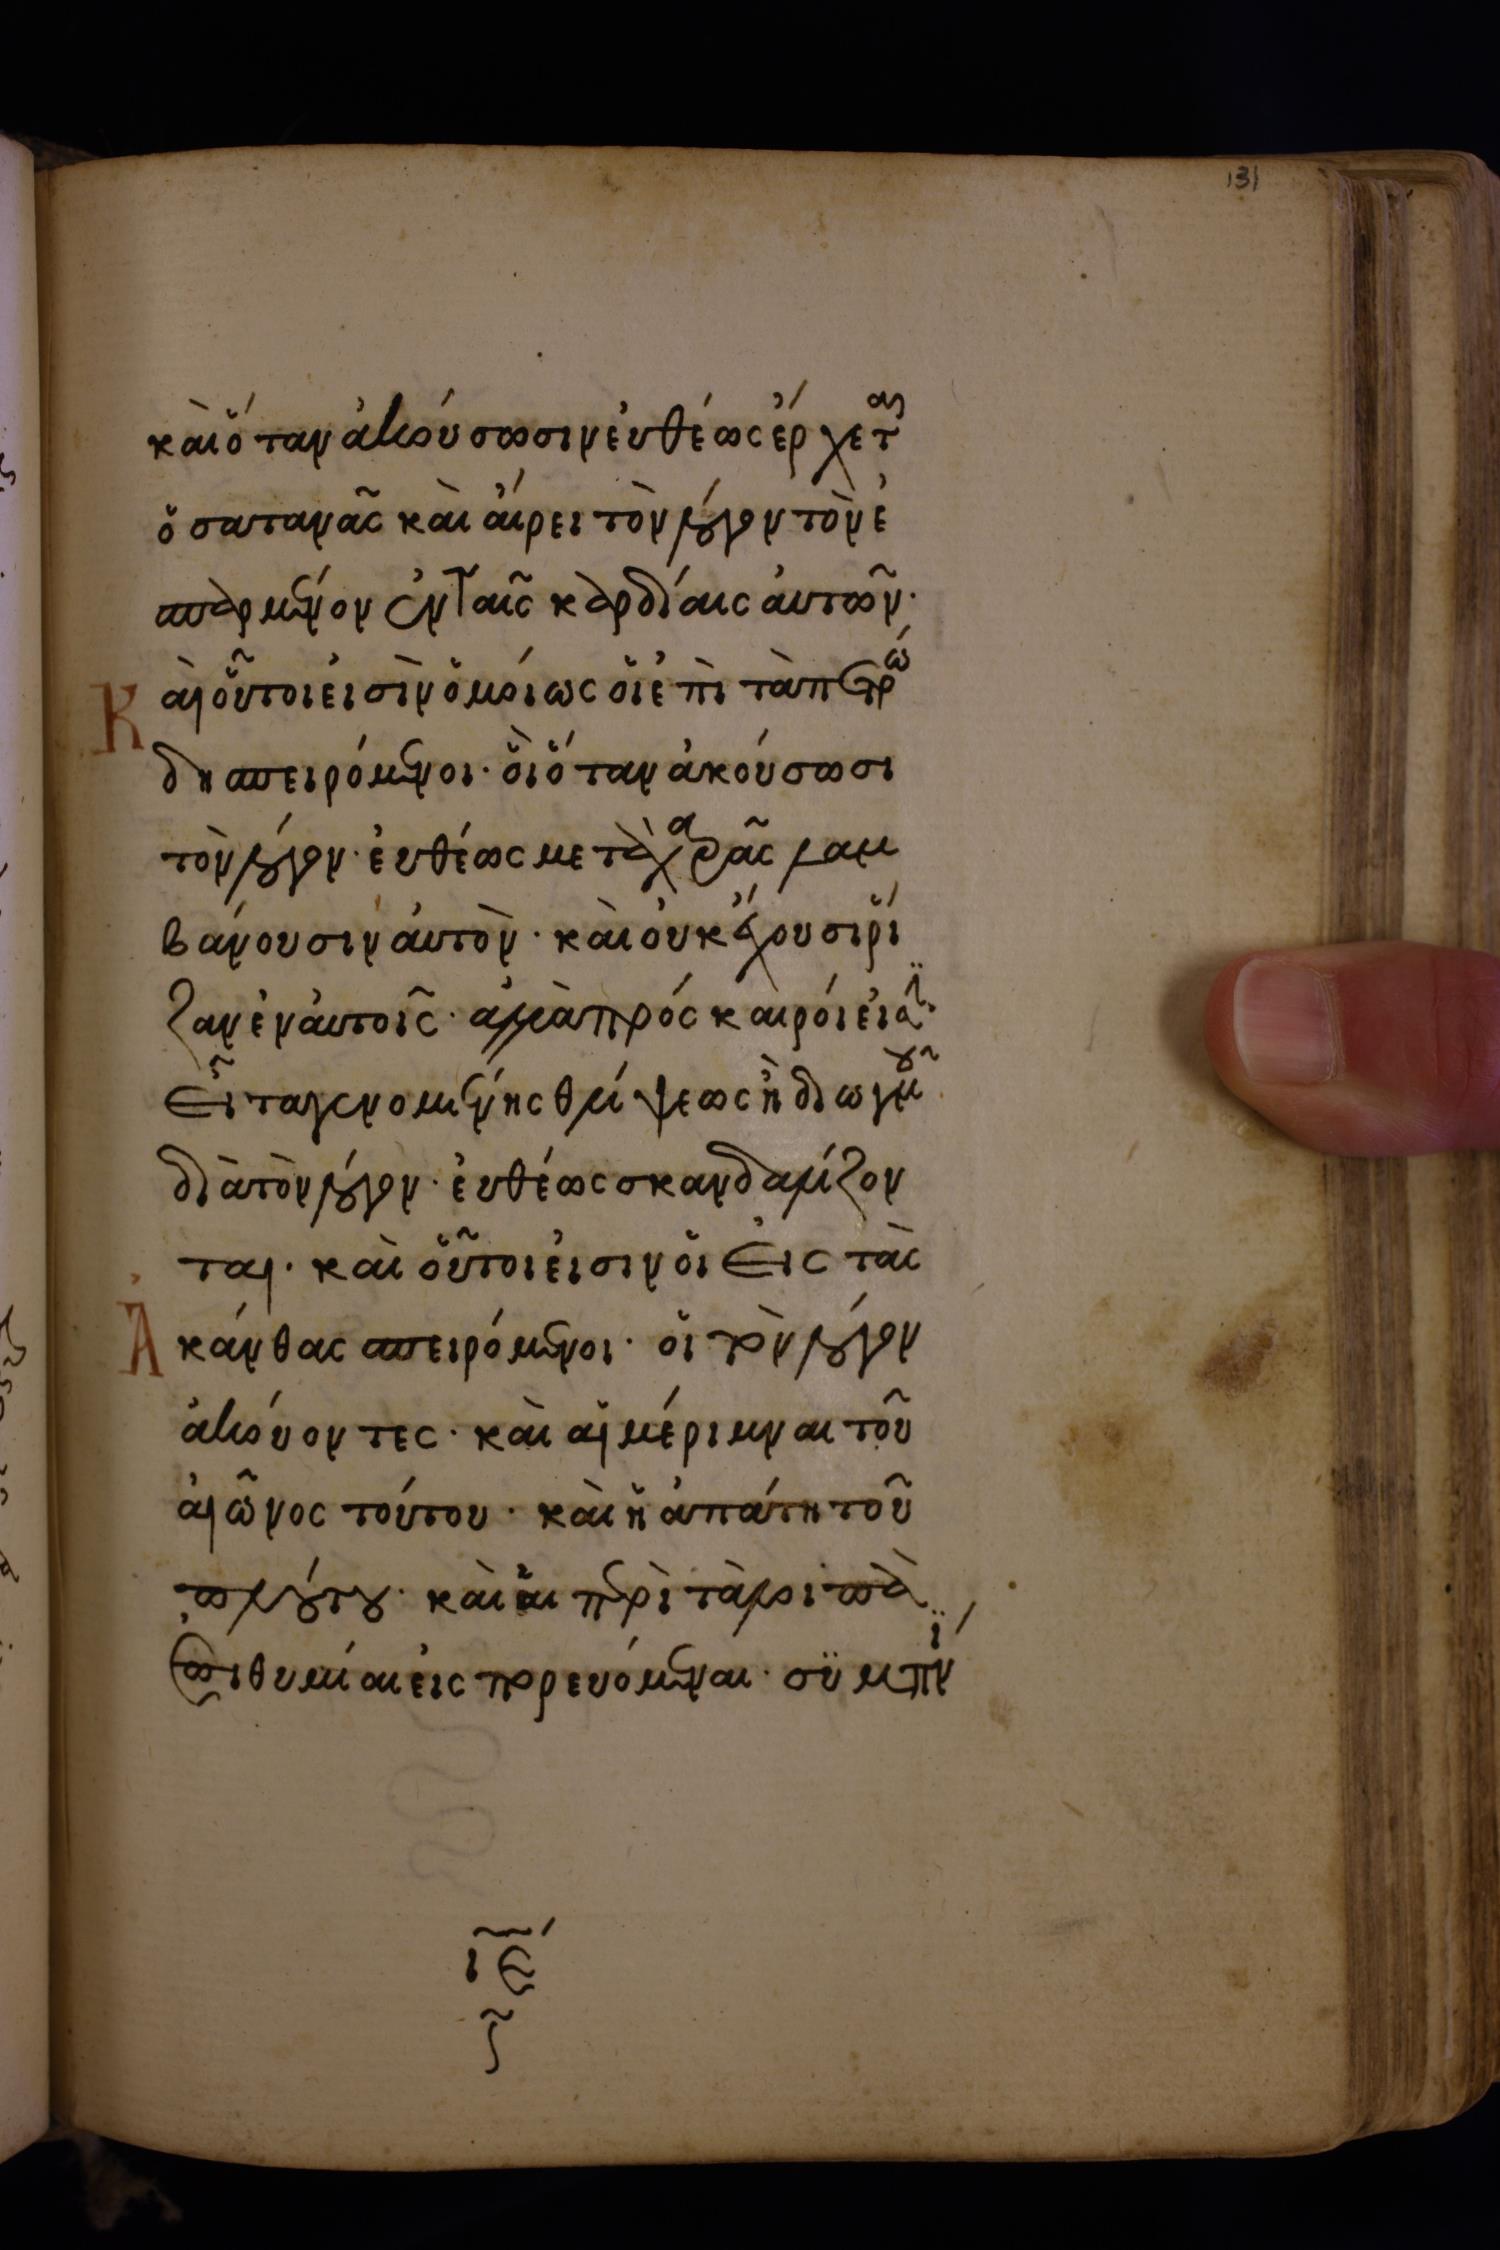 131
καὶ ὅταν ἀκούσωσιν εὐθέως ἔρχεται
ὁ σατανᾶς καὶ αἴρει τὸν λόγον τὸν ἐ
σπαρμένον ἐν ταῖς καρδίαις αὐτῶν·
Καὶ οὗτοι εἰσὶν ὁμοίως οἱ ἐπὶ τὰ πετρώ
δη σπειρόμενοι· οἳ ὅταν ἀκούσωσι
τὸν λόγον· εὐθέως μετὰ χαρᾶς λαμ
βάνουσιν αὐτὸν· καὶ οὐκ ἔχουσι ῥί
ζαν ἐν αὐτοῖς· ἀλλὰ πρόσκαιροί εἰσϊ·
Εἶτα γενομένης θλίψεως ἢ διωγμοῦ
διὰ τὸν λόγον· εὐθέως σκανδαλίζον
ται· καὶ οὗτοι εἰσιν οἱ εἰς τὰς
Ἀκάνθας σπειρόμενοι· οἱ τὸν λόγον
ἀκούοντες· καὶ αἱ μέριμναι τοῦ
αἰῶνος τούτου· καὶ ἡ ἀπάτη τοῦ
πλούτου· καὶ αἱ περὶ τὰ λοιπὰ
ἐπιθυμίαι εἰσπορευόμεναι· συμπνί
ιε